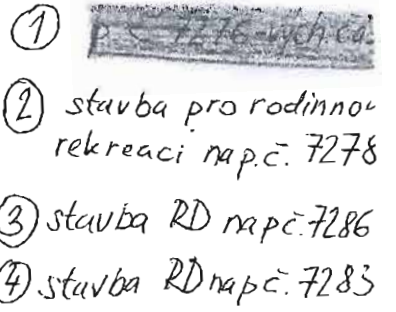 ①
② stavba pro rodinnou
rekreaci na p.č. 7278
③ stavba RD na p č. 7286
④ stavba RD na p č. 7283